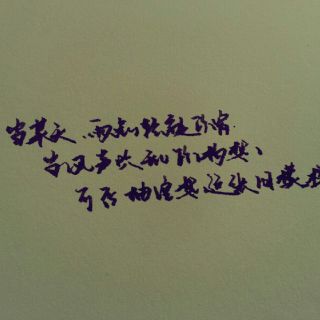 当某天 雨点轻敲你窗
当风声吹乱你构想
可否抽空想这张旧模样